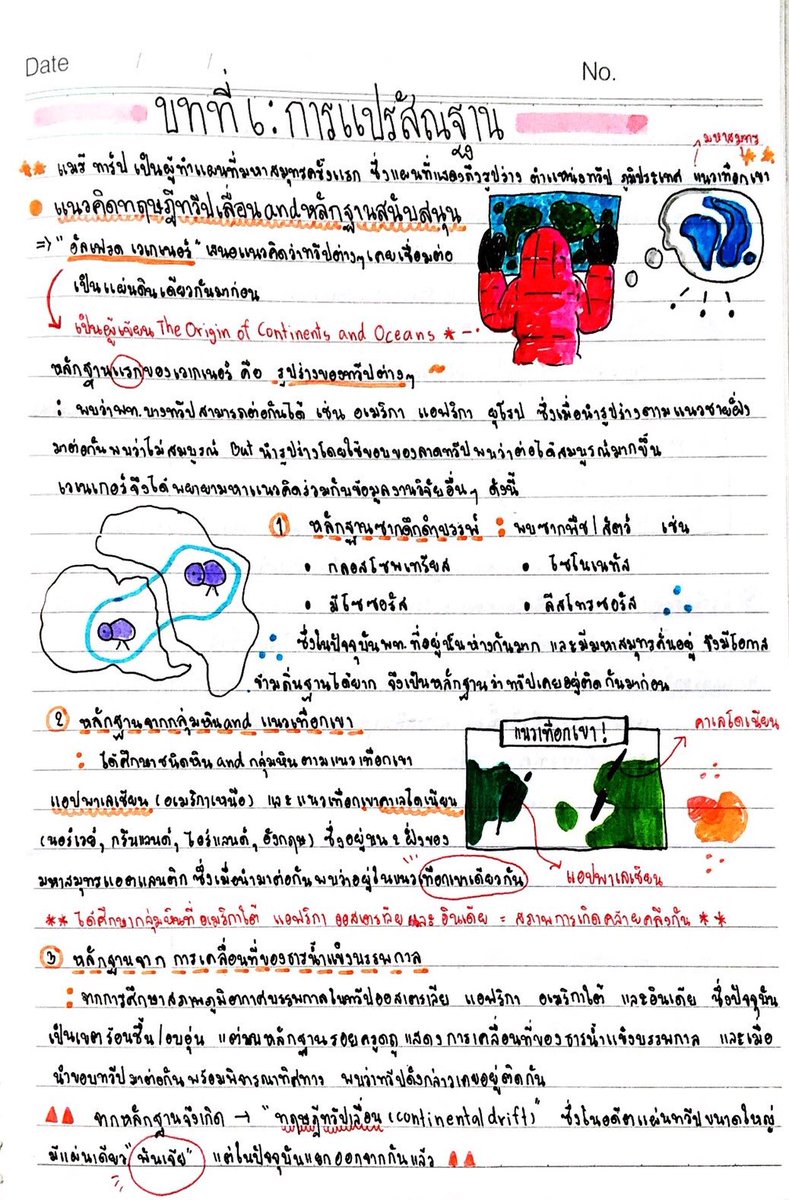 Date / /
No.
บทที่ ๖ : การแปรสัณฐาน
มหาสมุทร
แมรี ทาร์ป เป็นผู้ทำแผนที่มหาสมุทรครั้งแรก ซึ่งแผนที่แสดงถึงรูปร่าง ตำแหน่งทวีป ภูมิประเทศ แนวเทือกเขา
แนวคิดทฤษฎีทวีปเลื่อน and หลักฐานสนับสนุน
=> "อัลเฟรด เวเกเนอร์" เสนอแนวคิดว่าทวีปต่างๆ เคยเชื่อมต่อ
เป็นแผ่นดินเดียวกันมาก่อน
เป็นผู้เขียน The Origin of Continents and Oceans *
หลักฐานแรกของเวเกเนอร์ คือ รูปร่างของทวีปต่างๆ
: พบว่าพท.บางทวีปสามารถต่อกันได้ เช่น อเมริกา แอฟริกา ยุโรป ซึ่งเมื่อนำรูปร่างตามแนวชายฝั่ง
มาต่อกันพบว่าไม่สมบูรณ์ But นำรูปร่างโดยใช้ขอบของลาดทวีปพบว่าต่อได้สมบูรณ์มากขึ้น
เวเนเกอร์จึงได้พยายามหาแนวคิดร่วมกับข้อมูลงานวิจัยอื่นๆ ดังนี้
① หลักฐานซากดึกดำบรรพ์ : พบซากพืช/สัตว์ เช่น
• กลอสโซพเทรียส • ไซโนเนทัส
• มีโซซอรัส • ลีสโทรซอรัส
ซึ่งในปัจจุบันพท.ที่อยู่นั้นห่างกันมาก และมีมหาสมุทรคั่นอยู่ จึงมีโอกาส
ข้ามถิ่นฐานได้ยาก จึงเป็นหลักฐานว่าทวีปเคยอยู่ติดกันมาก่อน
② หลักฐานจากกลุ่มหิน and แนวเทือกเขา
: ได้ศึกษาชนิดหิน and กลุ่มหินตามแนวเทือกเขา
แอปพาเลเชียน (อเมริกาเหนือ) และแนวเทือกเขาคาเลโดเนียน
(นอร์เวย์, กรีนแลนด์, ไอร์แลนด์, อังกฤษ) ซึ่งอยู่บน 2 ฝั่งของ
มหาสมุทรแอตแลนติก ซึ่งเมื่อนำมาต่อกันพบว่าอยู่ในแนว "เทือกเขาเดียวกัน"
แนวเทือกเขา!
คาเลโดเนียน
แอปพาเลเชียน
** ได้ศึกษากลุ่มหินที่ อเมริกาใต้ แอฟริกา ออสเตรเลีย และ อินเดีย = สภาพการเกิดคล้ายคลึงกัน **
③ หลักฐานจาก การเคลื่อนที่ของธารน้ำแข็งบรรพกาล
: จากการศึกษาสภาพภูมิอากาศบรรพกาลในทวีปออสเตรเลีย แอฟริกา อเมริกาใต้ และอินเดีย ซึ่งปัจจุบัน
เป็นเขตร้อนชื้น/อบอุ่น แต่พบหลักฐานรอยครูดถู แสดงการเคลื่อนที่ของธารน้ำแข็งบรรพกาล และเมื่อ
นำขอบทวีปมาต่อกันพร้อมพิจารณาทิศทาง พบว่าทวีปดังกล่าวเคยอยู่ติดกัน
จากหลักฐานจึงเกิด → "ทฤษฎีทวีปเลื่อน (continental drift)" ซึ่งในอดีตแผ่นทวีปขนาดใหญ่
มีแผ่นเดียว "พันเจีย" แต่ในปัจจุบันแยกออกจากกันแล้ว